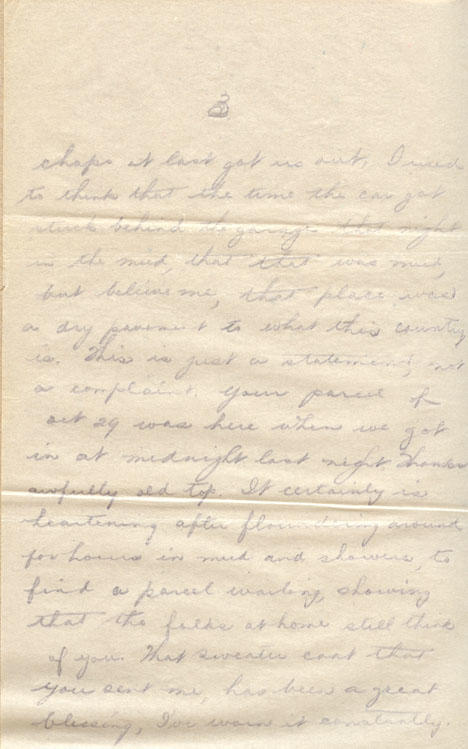 3
chaps at last got us out. I used
to think that the time the car got
stuck behind the garage that night
in the mud, that "that" was mud,
but believe me, that place was
a dry pavement to what this country
is. This is just a statement, not
a complaint. Your parcel of
Oct 29 was here when we got
in at midnight last night Thanks
awfully old top. It certainly is
heartening after floundring around
for hours in mud and showers, to
find a parcel waiting, showing
that the folks at home still think
of you. That sweater coat that
you sent me, has been a great
blessing, I've worn it constantly.